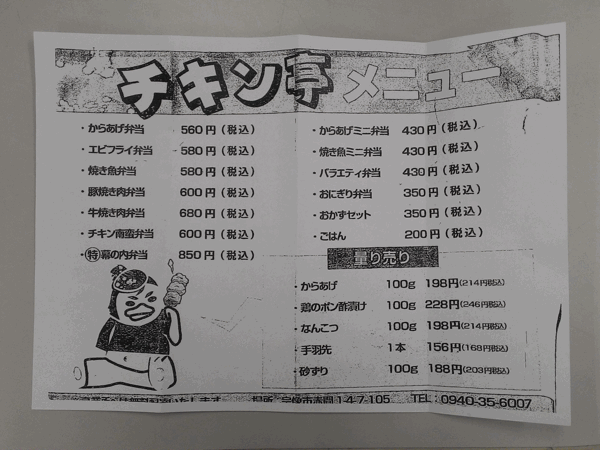 チキン亭 メニュー
・からあげ弁当 560円(税込)
・エビフライ弁当 580円(税込)
・焼き魚弁当 580円(税込)
・豚焼き肉弁当 600円(税込)
・牛焼き肉弁当 680円(税込)
・チキン南蛮弁当 600円(税込)
・㊕幕の内弁当 850円(税込)
・からあげミニ弁当 430円(税込)
・焼き魚ミニ弁当 430円(税込)
・バラエティ弁当 430円(税込)
・おにぎり弁当 350円(税込)
・おかずセット 350円(税込)
・ごはん 200円(税込)
量り売り
・からあげ 100g 198円(214円税込)
・鶏のポン酢漬け 100g 228円(246円税込)
・なんこつ 100g 198円(214円税込)
・手羽先 1本 156円(168円税込)
・砂ずり 100g 188円(203円税込)
場所 宗像市赤間1-4-7-105 TEL:0940-35-6007